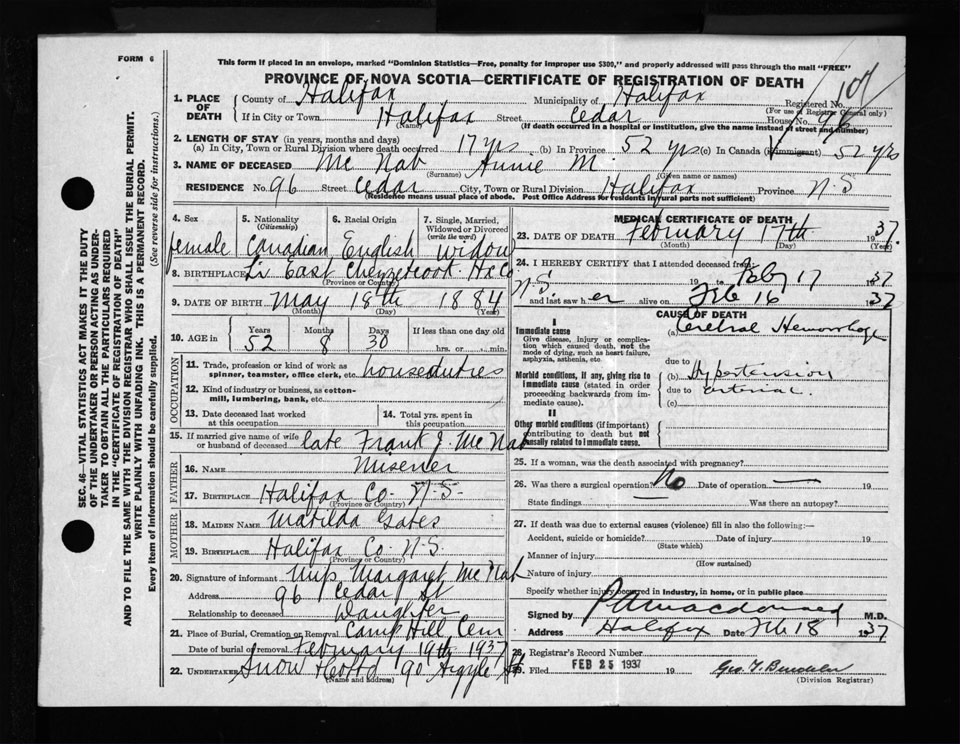 FORM 6
This form if placed in an envelope, marked "Dominion Statistics—Free, penalty for improper use $300," and properly addressed will pass through the mail "FREE"
PROVINCE OF NOVA SCOTIA—CERTIFICATE OF REGISTRATION OF DEATH
107
1. PLACE OF DEATH
County of Halifax Municipality of Halifax Registered No.
(For use of Registrar General only)
If in City or Town Halifax Street Cedar House No. 96
(Name) (If death occurred in a hospital or institution, give the name instead of street and number)
2. LENGTH OF STAY (in years, months and days)
(a) In City, Town or Rural Division where death occurred 17 yrs (b) In Province 52 yrs (c) In Canada (if immigrant) 52 yrs
3. NAME OF DECEASED Mc Nab Annie M.
(Surname) (Given name or names)
RESIDENCE No. 96 Street Cedar City, Town or Rural Division Halifax Province N.S
(Residence means usual place of abode. Post Office Address for residents in rural parts not sufficient)
4. Sex female
5. Nationality (Citizenship) Canadian
6. Racial Origin English
7. Single, Married, Widowed or Divorced (write the word) Widow
8. BIRTHPLACE East Chezzetcook Hx Co N.S.
(Province or Country)
9. DATE OF BIRTH May 18th 1884
(Month) (Day) (Year)
10. AGE in Years 52 Months 8 Days 30 If less than one day old
hrs. or min.
OCCUPATION
11. Trade, profession or kind of work as spinner, teamster, office clerk, etc. houseduties
12. Kind of industry or business, as cotton-mill, lumbering, bank, etc.
13. Date deceased last worked at this occupation
14. Total yrs. spent in this occupation
15. If married give name of wife or husband of deceased late Frank J. Mc Nab
FATHER
16. NAME Misener
17. BIRTHPLACE Halifax Co. N.S.
(Province or Country)
MOTHER
18. MAIDEN NAME Matilda Gates
19. BIRTHPLACE Halifax Co. N.S.
(Province or Country)
20. Signature of informant Miss Margaret Mc Nab
Address 96 Cedar St
Relationship to deceased Daughter
21. Place of Burial, Cremation or Removal Camp Hill Cem
Date of burial or removal February 19th 1937
22. UNDERTAKER Snow & Co Ltd 90 Argyle St
(Name and address)
MEDICAL CERTIFICATE OF DEATH
23. DATE OF DEATH February 17th 1937.
(Month) (Day) (Year)
24. I HEREBY CERTIFY that I attended deceased from
19 to Feby 17 1937
and last saw her alive on Feb 16 1937
CAUSE OF DEATH
I
Immediate cause
Give disease, injury or complication which caused death, not the mode of dying, such as heart failure, asphyxia, asthenia, etc
(a) Cerebral Hemorrhage
due to
Morbid conditions, if any, giving rise to immediate cause (stated in order proceeding backwards from immediate cause).
(b) Hypertension
due to arterial.
(c)
II
Other morbid conditions (if important) contributing to death but not causally related to immediate cause.
25. If a woman, was the death associated with pregnancy?
26. Was there a surgical operation? No Date of operation — 19
State findings — Was there an autopsy?
27. If death was due to external causes (violence) fill in also the following:—
Accident, suicide or homicide? Date of injury 19
(State which)
Manner of injury
(How sustained)
Nature of injury
Specify whether injury occurred in industry, in home, or in public place
Signed by P A Macdonald M.D.
Address Halifax Date Feb 18 1937
28. Registrar's Record Number
29. Filed FEB 25 1937 19
(Division Registrar)
SEC. 46—VITAL STATISTICS ACT MAKES IT THE DUTY
OF THE UNDERTAKER OR PERSON ACTING AS UNDER-
TAKER TO OBTAIN ALL THE PARTICULARS REQUIRED
IN THE "CERTIFICATE OF REGISTRATION OF DEATH"
AND TO FILE THE SAME WITH THE DIVISION REGISTRAR WHO SHALL ISSUE THE BURIAL PERMIT.
WRITE PLAINLY WITH UNFADING INK. THIS IS A PERMANENT RECORD.
Every item of information should be carefully supplied. (See reverse side for instructions.)